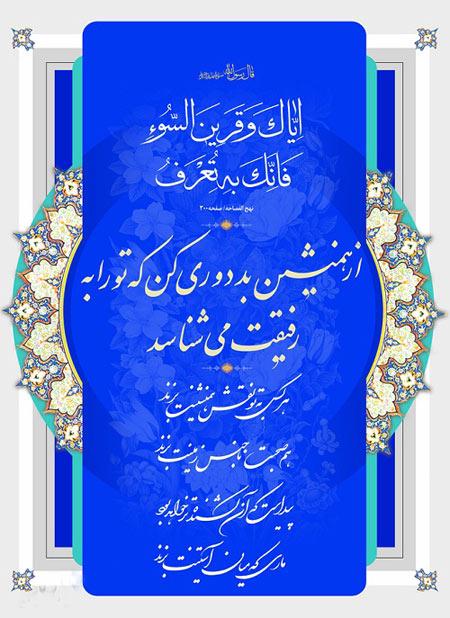 قال رسول الله
اِيّاكَ وَ قَرينَ السّوُء
فَاِنَّكَ بِهِ تُعْرَفُ
نهج الفصاحه / صفحه ۳۰۰
از همنشین بد دوری کن که تو را به
رفیقت می شناسد
هر کس به تو نقش همنشینت بزند
هم صحبت ناجنس زمینت بزند
پیداست که آن کشنده تر خواهد بود
ماری که میان آستینت بزند